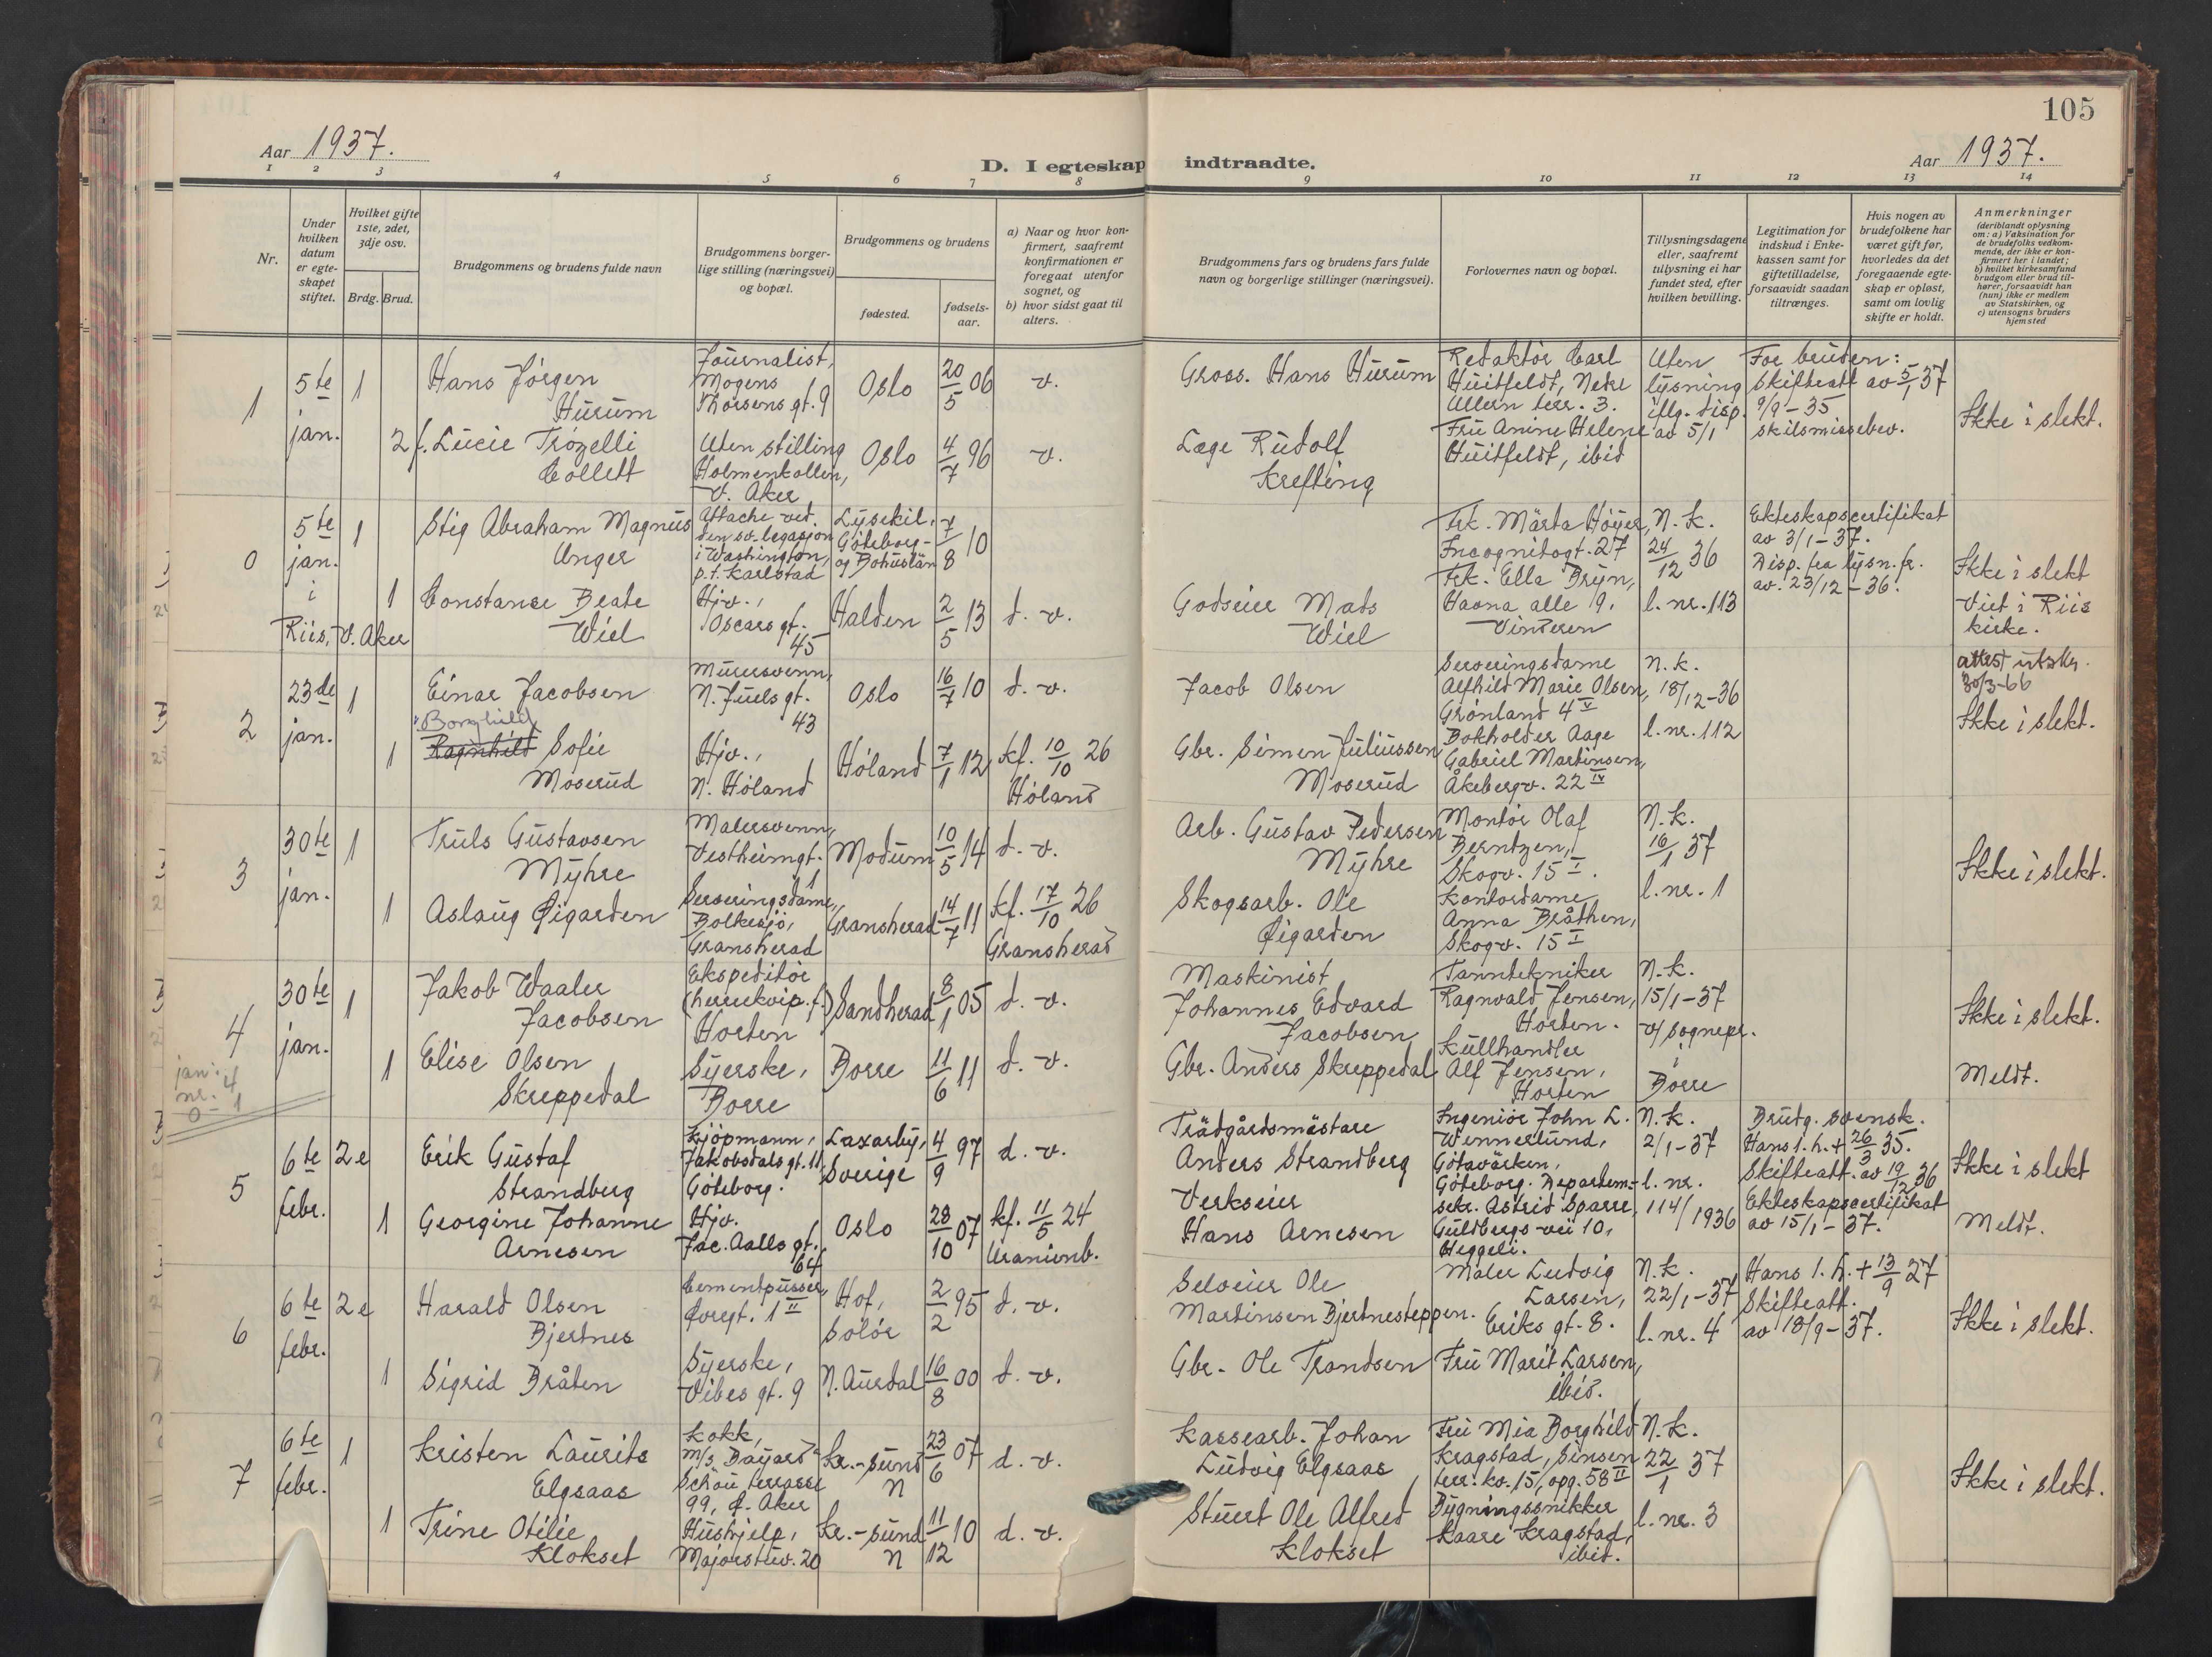 105
Aar 1937.
D. I egteskap indtraadte.
Aar 1937.
1 2 3 4 5 6 7 8 9 10 11 12 13 14
Nr.
Under hvilken datum er egteskapet stiftet.
Hvilket gifte 1ste, 2det, 3dje osv.
Brdg. Brud.
Brudgommens og brudens fulde navn
Brudgommens borgerlige stilling (næringsvei) og bopæl.
Brudgommens og brudens
fødested.
fødselsaar.
a) Naar og hvor konfirmert, saafremt konfirmationen er foregaat utenfor sognet, og
b) hvor sidst gaat til alters.
Brudgommens fars og brudens fars fulde navn og borgerlige stillinger (næringsvei).
Forlovernes navn og bopæl.
Tillysningsdagene eller, saafremt tillysning ei har fundet sted, efter hvilken bevilling.
Legitimation for indskud i Enkekassen samt for giftetilladelse, forsaavidt saadan tiltrænges.
Hvis nogen av brudefolkene har været gift før, hvorledes da det foregaaende egteskap er opløst, samt om lovlig skifte er holdt.
Anmerkninger
(deriblandt oplysning om: a) Vaksination for de brudefolks vedkommende, der ikke er konfirmert her i landet;
b) hvilket kirkesamfund brudgom eller brud tilhører, forsaavidt han (hun) ikke er medlem av Statskirken, og
c) utensogns bruders hjemsted
1
5te jan.
1
Hans Jørgen Hurum
Journalist, Mogens Thorsens gt. 9
Oslo
20/5 06
v.
Gross. Hans Hurum
Redaktør Carl Huitfeldt, Nedre Ullern terr. 3.
Uten lysning iflg. disp. av 5/1
For bruden: Skifteatt av 5/1 37
9/9-35 skilsmissebev.
Ikke i slekt.
2
f. Lucie Trozelli Collett
Uten stilling Holmenkollen, V. Aker
Oslo
4/7 96
v.
Læge Rudolf Krefting
Fru Anine Helene Huitfeldt, ibid
0
5te jan. i Riis, V. Aker
1
Stig Abraham Magnus Unger
Attache ved den sv. legasjon i Washington, p.t. Karlstad
Lysekil, Göteborg- og Bohuslän
7/8 10
Frk. Märta Höijer, Incognitogt. 27
N.k. 24/12 36
l. nr. 113
Ekteskapscertifikat av 3/1-37.
Disp. fra lysn. fr. av. 23/12-36.
Ikke i slekt
Viet i Riis kirke.
1
Constance Beate Wiel
Hjv., Oscars gt. 45
Halden
2/5 13
d. v.
Godseier Mads Wiel
Frk. Ella Bryn, Haona alle 19, Vinderen
2
23de jan.
1
Einar Jacobsen
Murersvenn, N. Juels gt. 43
Oslo
16/7 10
d. v.
Jacob Olsen
Serveringsdame Alfhild Marie Olsen, Grønland 4 V
N.k. 18/12-36
l. nr. 112
attest utskr. 30/3-66
Ikke i slekt.
1
Borghild
Ragnhild Sofie Moserud
Hjv., N. Høland
Høland
7/1 12
kf. 10/10 26 Høland
Gbr. Simen Juliussen Moserud
Bokholder Aage Gabriel Martinsen, Åkebergv. 22 IV
3
30te jan.
1
Truls Gustavsen Myhre
Malersvenn, Vestheimgt. 1
Modum
10/5 14
d. v.
Arb. Gustav Pedersen Myhre
Montør Olaf Berntzen, Skogv. 15 I.
N.k. 16/1 37
l. nr. 1
Ikke i slekt.
1
Aslaug Øigarden
Serveringsdame, Bolkesjø, Gransherad
Gransherad
14/7 11
kf. 17/10 26 Gransherad
Skogsarb. Ole Øigarden
Kontordame Anna Bråthen, Skogv. 15 I
4
30te jan.
1
Jakob Waaler Jacobsen
Ekspeditør (herrekvip. f.) Horten
Sandherad
8/1 05
d. v.
Maskinist Johannes Edvard Jacobsen
Tanntekniker Ragnvald Jensen, Horten.
N.k. 15/1-37 v/ sognepr. i Borre
Ikke i slekt.
Meldt.
1
Elise Olsen Skreppedal
Syerske, Borre
Borre
11/6 11
d. v.
Gbr. Anders Skreppedal
Kullhandler Alf Jensen, Horten
jan: nr. 4
0-1
5
6te febr.
2e
Erik Gustaf Strandberg
Kjøpmann, Jakobsdals gt. 11, Göteborg.
Laxarby, Sverige
4/9 97
d. v.
Trädgårdsmästare Anders Strandberg
Ingeniør John L. Wennerlund, Götavärken, Göteborg.
N.k. 2/1-37
l. nr. 114/1936
Brudg. svensk.
Hans 1. h. + 26/3 35.
Skifteatt. av 19/2 36
Ekteskapscertifikat av 15/1-37.
Ikke i slekt
Meldt.
1
Georgine Johanne Arnesen
Hjv. Jac. Aalls gt. 64
Oslo
28/10 07
kf. 11/5 24 Uranienb.
Verkseier Hans Arnesen
Departem.-sekr. Astrid Sparre, Guldbergs vei 10, Heggeli.
6
6te febr.
2e
Harald Olsen Bjertnes
Cementpusser, Korsgt. 1 II
Hof, Solør
2/2 95
d. v.
Selveier Ole Martinsen Bjertnesteppen.
Maler Ludvig Larsen, Eriks gt. 8.
N.k. 22/1-37
l. nr. 4
Hans 1. h. + 13/9 27
Skifteatt. av 18/9-37.
Ikke i slekt.
1
Sigrid Bråten
Syerske, Vibes gt. 9
N. Aurdal
16/8 00
d. v.
Gbr. Ole Trondsen
Fru Marit Larsen, ibid.
7
6te febr.
1
Kristen Laurits Elgsaas
Kokk, m/s "Bayard" Schou terrasse 99, Ø. Aker
Kr.-sund N
23/6 07
d. v.
Kassearb. Johan Ludvig Elgsaas
Fru Mia Borghild Kragstad, Sinsen terr. kv. 15, opg. 58 II
N.k. 22/1 37
l. nr. 3
Ikke i slekt.
1
Trine Otilie Klokset
Hushjelp, Majorstuv. 20
Kr.-sund N
11/12 10
d. v.
Stuert Ole Alfred Klokset
Bygningssnikker Kaare Kragstad, ibid.